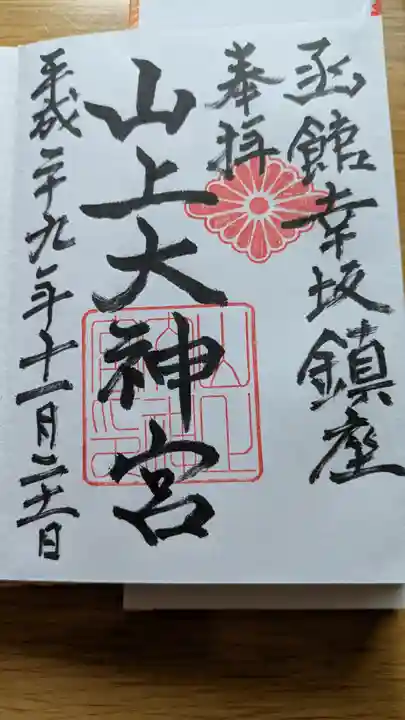 函館幸坂鎮座
奉拝
山上大神宮
平成二十九年十一月二十日